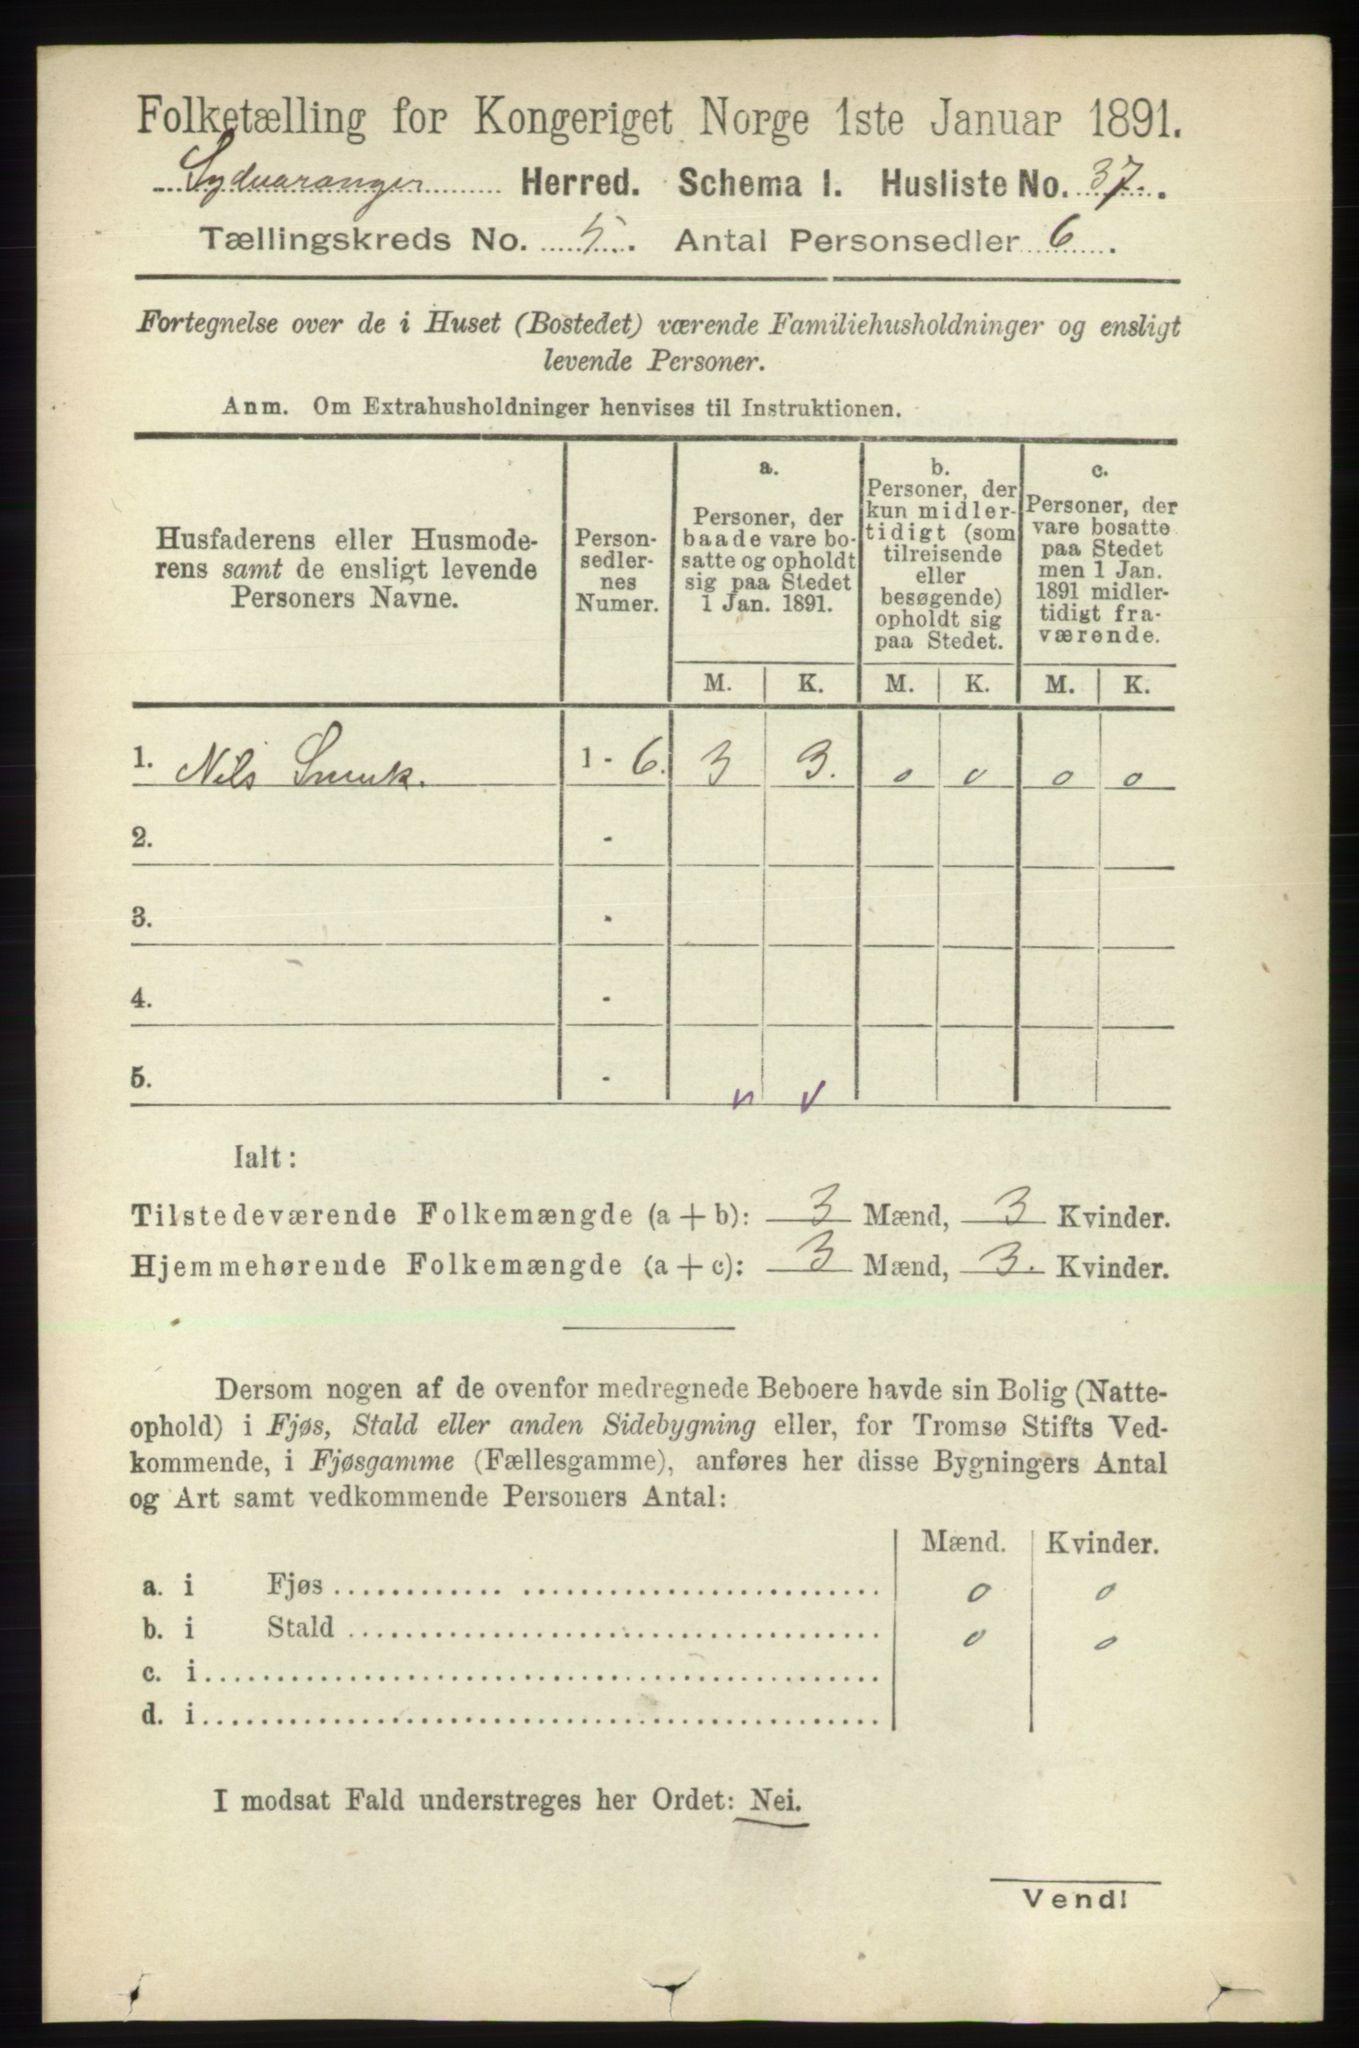 Folketælling for Kongeriget Norge 1ste Januar 1891.
Sydvaranger Herred. Schema I. Husliste No. 37.
Tællingskreds No. 5. Antal Personsedler 6.
Fortegnelse over de i Huset (Bostedet) værende Familiehusholdninger og ensligt
levende Personer.
Anm. Om Extrahusholdninger henvises til Instruktionen.
Husfaderens eller Husmode-
rens samt de ensligt levende
Personers Navne.
Person-
sedler-
nes
Numer.
a.
Personer, der
baade vare bo-
satte og opholdt
sig paa Stedet
1 Jan. 1891.
b.
Personer, der
kun midler-
tidigt (som
tilreisende
eller
besøgende)
opholdt sig
paa Stedet.
c.
Personer, der
vare bosatte
paa Stedet
men 1 Jan.
1891 midler-
tidigt fra-
værende.
M. K. M. K. M. K.
1. Nils Smuk. 1 - 6. 3 3. 0 0 0 0
2. -
3. -
4. -
5. -
Ialt:
Tilstedeværende Folkemængde (a + b): 3 Mænd, 3 Kvinder.
Hjemmehørende Folkemængde (a + c): 3 Mænd, 3. Kvinder.
Dersom nogen af de ovenfor medregnede Beboere havde sin Bolig (Natte-
ophold) i Fjøs, Stald eller anden Sidebygning eller, for Tromsø Stifts Ved-
kommende, i Fjøsgamme (Fællesgamme), anføres her disse Bygningers Antal
og Art samt vedkommende Personers Antal:
Mænd. Kvinder.
a. i Fjøs 0 0
b. i Stald 0 0
c. i
d. i
I modsat Fald understreges her Ordet: Nei.
Vend!